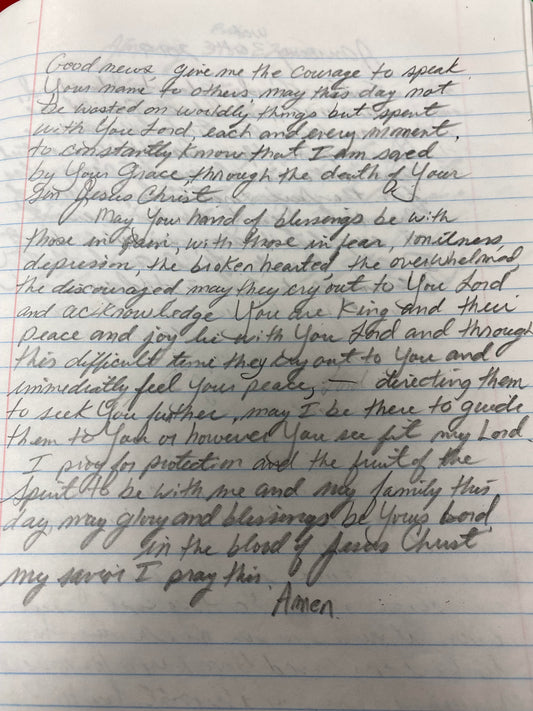 Good news, give me the courage to speak
Your name to others, may this day not
be wasted on worldly things but spent
with You Lord, each and every moment,
to constantly know that I am saved
by Your Grace, through the death of Your
Son Jesus Christ.
May Your hand of blessings be with
those in pain, with those in fear, lonilness,
depression, the broken hearted, the overwhelmed,
the discouraged may they cry out to You Lord
and acicknowledge You are King and their
peace and joy lie with You Lord and through
this difficult time they cry out to You and
immediatly feel Your peace, — directing them
to seek You further, may I be there to guide
them to You or however You see fit my Lord.
I pray for protection and the fruit of the
Spirit to be with me and my family this
day, may glory and blessings be Yours Lord,
in the blood of Jesus Christ
my savior I pray this.
Amen.